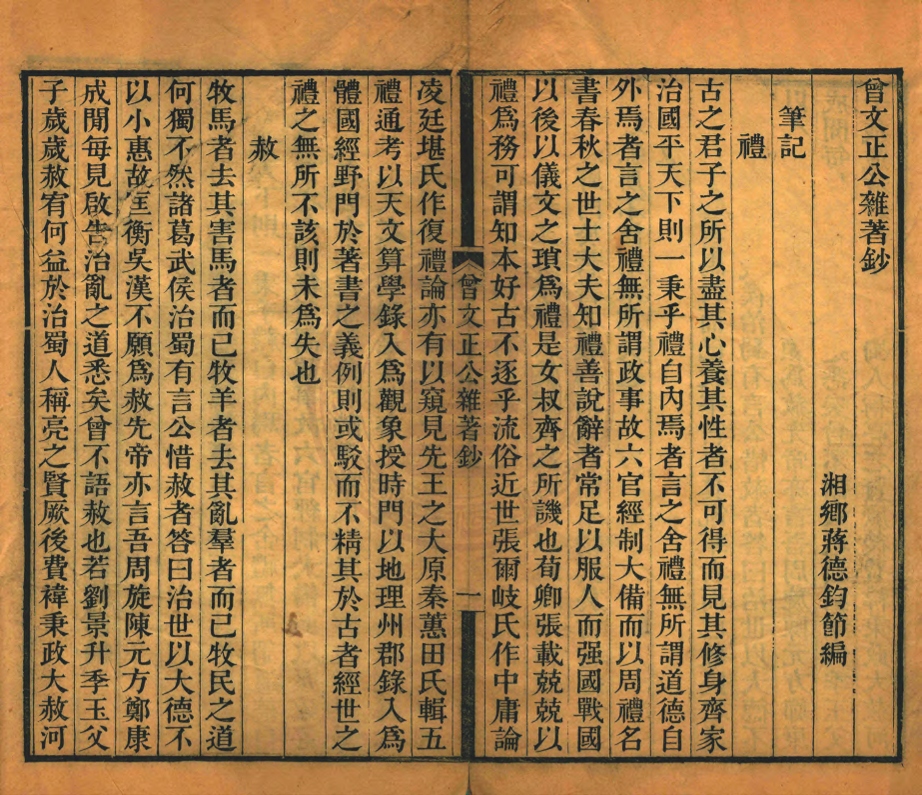 曾文正公雜著鈔
湘鄉蔣德鈞節編
筆記
禮
古之君子之所以盡其心養其性者不可得而見其修身齊家
治國平天下則一秉乎禮自內焉者言之舍禮無所謂道德自
外焉者言之舍禮無所謂政事故六官經制大備而以周禮名
書春秋之世士大夫知禮善說辭者常足以服人而强國戰國
以後以儀文之瑣爲禮是女叔齊之所譏也荀卿張載兢兢以
禮爲務可謂知本好古不逐乎流俗近世張爾岐氏作中庸論
曾文正公雜著鈔
一
凌廷堪氏作復禮論亦有以窺見先王之大原秦蕙田氏輯五
禮通考以天文算學錄入爲觀象授時門以地理州郡錄入爲
體國經野門於著書之義例則或駁而不精其於古者經世之
禮之無所不該則未爲失也
赦
牧馬者去其害馬者而已牧羊者去其亂羣者而已牧民之道
何獨不然諸葛武侯治蜀有言公惜赦者答曰治世以大德不
以小惠故匡衡吳漢不願爲赦先帝亦言吾周旋陳元方鄭康
成閒每見啟告治亂之道悉矣曾不語赦也若劉景升季玉父
子歲歲赦宥何益於治蜀人稱亮之賢厥後費禕秉政大赦河